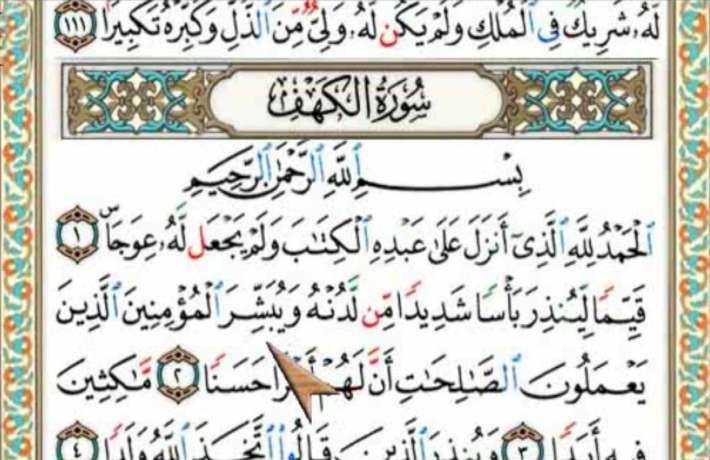 لَّهُۥ شَرِيكٌ فِى ٱلْمُلْكِ وَلَمْ يَكُن لَّهُۥ وَلِىٌّ مِّنَ ٱلذُّلِّ وَكَبِّرْهُ تَكْبِيرًۢا ١١١
سُورَةُ الكَهْفِ
بِسْمِ ٱللَّهِ ٱلرَّحْمَٰنِ ٱلرَّحِيمِ
ٱلْحَمْدُ لِلَّهِ ٱلَّذِىٓ أَنزَلَ عَلَىٰ عَبْدِهِ ٱلْكِتَٰبَ وَلَمْ يَجْعَل لَّهُۥ عِوَجَاۜ ١
قَيِّمًا لِّيُنذِرَ بَأْسًا شَدِيدًا مِّن لَّدُنْهُ وَيُبَشِّرَ ٱلْمُؤْمِنِينَ ٱلَّذِينَ
يَعْمَلُونَ ٱلصَّٰلِحَٰتِ أَنَّ لَهُمْ أَجْرًا حَسَنًا ٢ مَّٰكِثِينَ
فِيهِ أَبَدًا ٣ وَيُنذِرَ ٱلَّذِينَ قَالُوا۟ ٱتَّخَذَ ٱللَّهُ وَلَدًا ٤